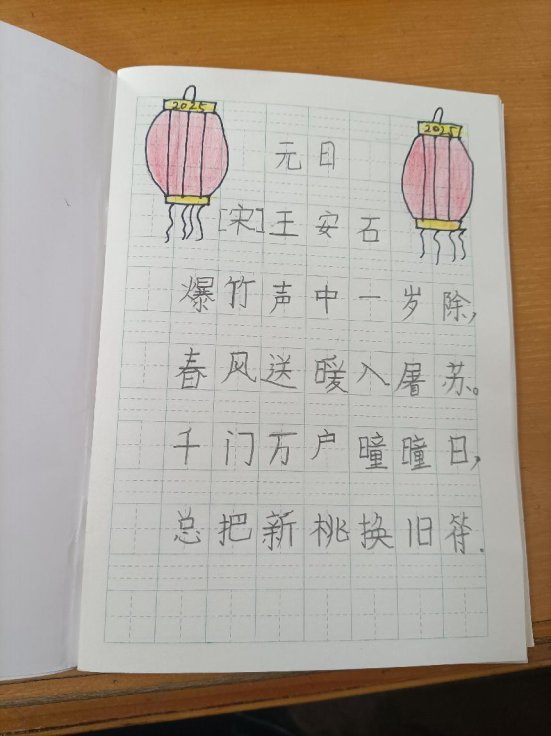 2025
2025
元日
[宋]王安石
爆竹声中一岁除,
春风送暖入屠苏。
千门万户曈曈日,
总把新桃换旧符.